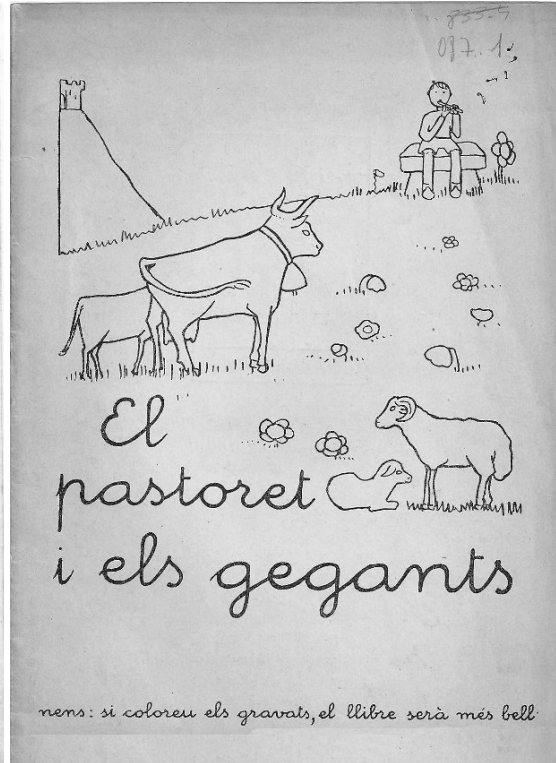 087.1.
El
pastoret
i els gegants
nens: si coloreu els gravats, el llibre serà més bell.